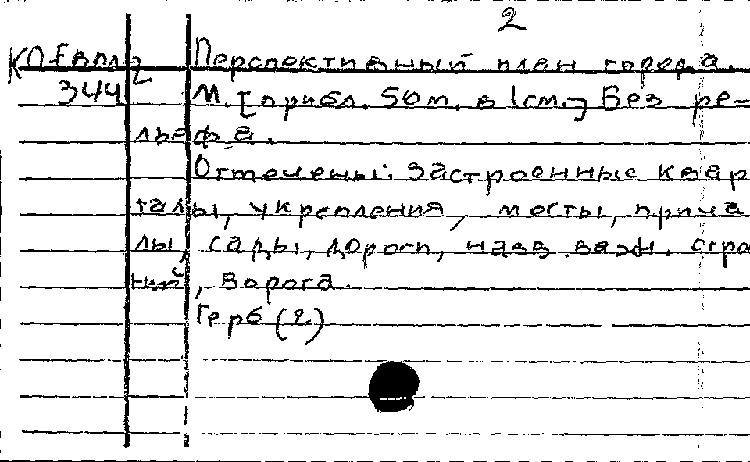 2
КО Евпл2 Перспективный план города.
344 М. [прибл. 50 м. в 1см.] Без ре-
льефа.
Отмечены: застроенные квар
талы, укрепления, мосты, прича
лы, сады, дороги, назв. важн. стро
ний, ворота.
Герб (2)